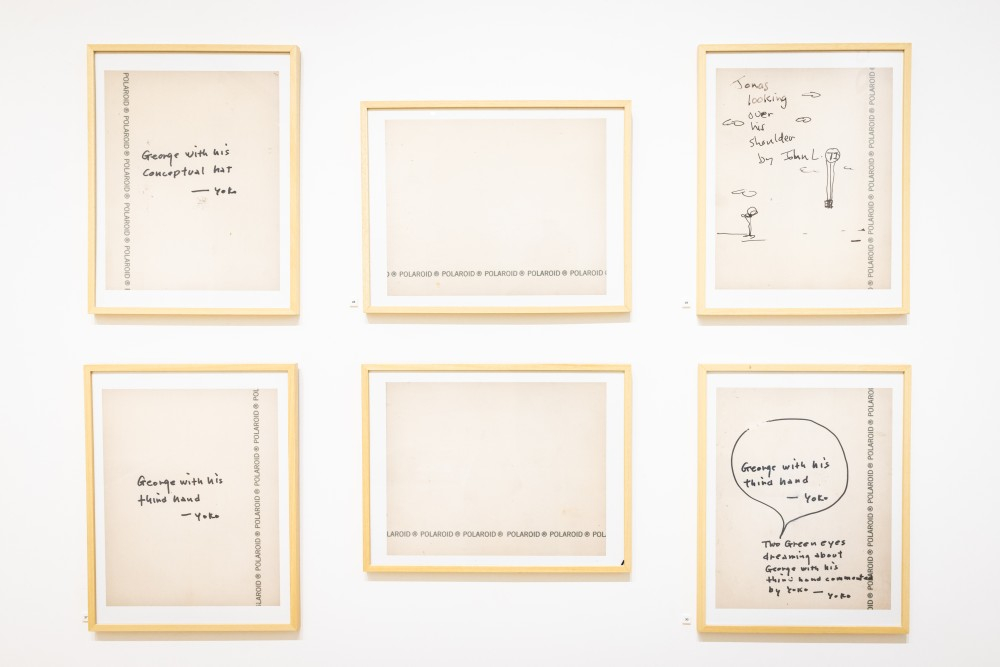 POLAROID ® POLAROID ® POLAROID ® POLAROID ® POLAROID ®
George with his
Conceptual hat
— Yoko
® POLAROID ® POLAROID ® POLAROID ® POLAROID ® POLAROID
Jonas
looking
over
his
shoulder
by John L.
POLAROID ® POLAROID ® POLAROID ® POLAROID ®
George with his
third hand
— Yoko
POLAROID ® POLAROID ® POLAROID ® POLAROID
LAROID ® POLAROID ® POLAROID ® POLAROID ® POL
George with his
third hand
— Yoko
Two Green eyes
dreaming about
George with his
third hand commented
by Yoko — Yoko
POLAROID ® POLAROID ® POLAROID ® POLAROID ®